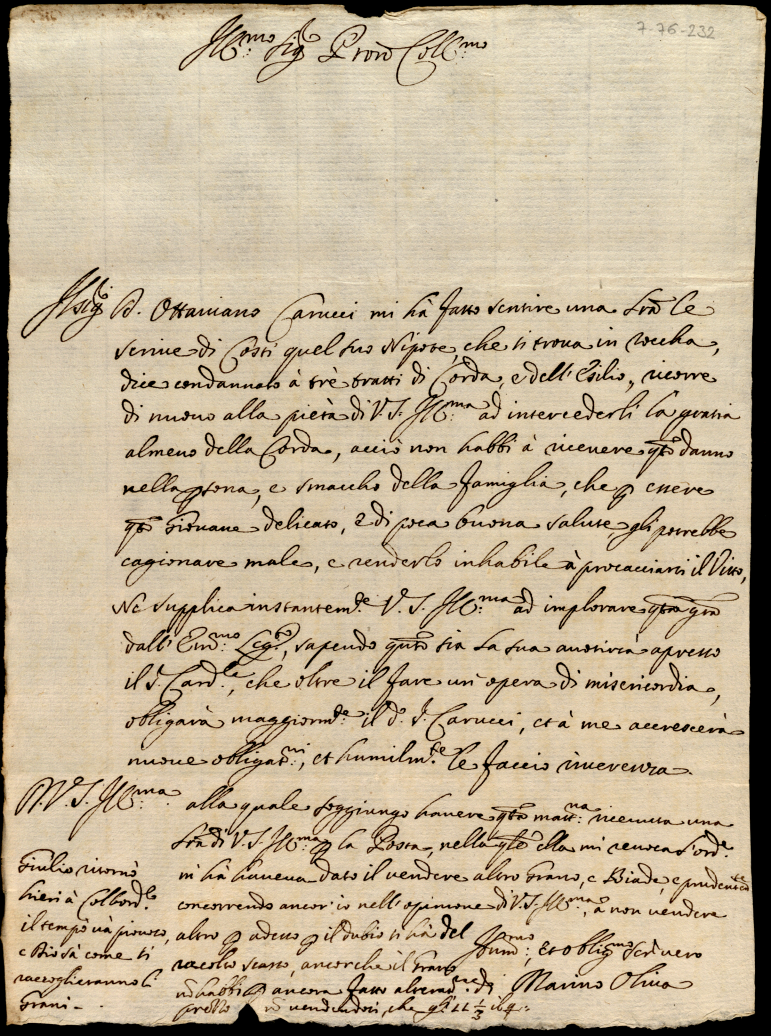 7-76-232
Ill:mo Sig:re Pron Coll:mo
Il Sig:r D. Ottaviano Carucci mi hà fatto sentire una Lra le
scrive di Costì quel suo Nipote, che si trova in roccha,
dice condannato à trè tratti di Corda, e dell'Esilio, ricorre
di nuovo alla pietà di V.S. Ill:ma ad intercederli la gratia
almeno della Corda, acciò non habbi à ricevere qto danno
nella psona, e smaccho della famiglia, che p essere
qto Giovane delicato, e di poca buona salute, gli potrebbe
cagionare male, e renderlo inhabile à procacciarsi il Vitto,
Ne supplica instantem:te V.S. Ill:ma ad implorare qta gra
dall'Em:mo Leg:to, sapendo qto sia la sua autorità apresso
il S. Card:le, che oltre il fare un opera di misericordia,
obligarà maggiorm:te il d:o S. Carucci, et à me accrescerà
nuove obligat:ni, et humilm:te le faccio riverenza.
D. V. S. Ill:ma alla quale soggiungo havere qta matt:na ricevuta una
Lra di V.S. Ill:ma p la Posta, nella qle ella mi revoca l'ord:e
m'hà haveva dato il vendere altro Grano, e Biade, e prudentte
concorrendo ancor io nell'opinione di V.S. Ill:ma, à non vendere
altro p adesso p il dubio si hà del
racolto scarso, ancorche il Grano
nō habbi ancora fatto alterat:ne di
prezzo nō vendendosi, che gli 11 1/3 il q:
Hum:mo, et oblig:mo Servero
Marino Oliva
Giulio ritornò
hieri à Colbord:lo
il tempo và piovoso,
e Dio sà come si
raccoglieranno li
Grani -